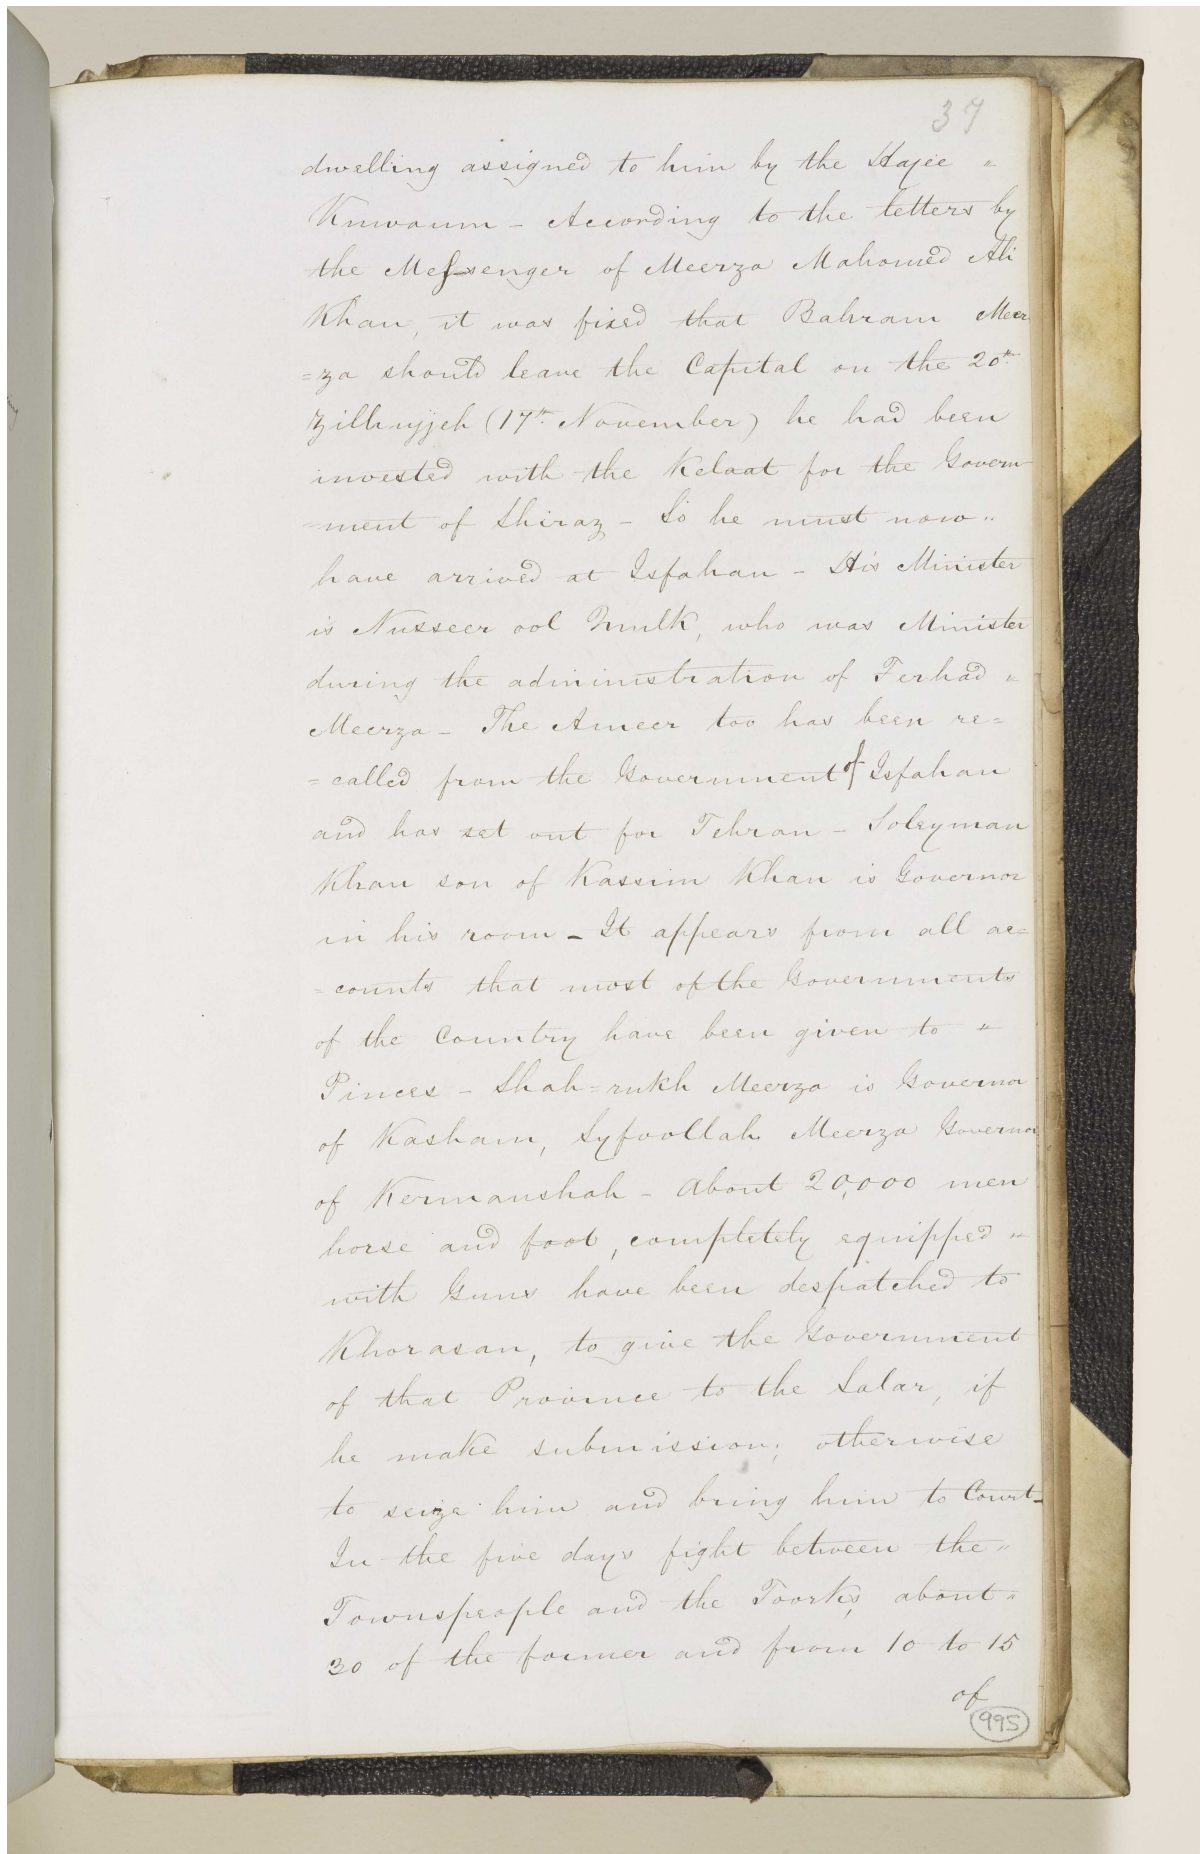 37
dwelling assigned to him by the Hajee "
Knwaum - According to the letters by
the Messenger of Meerza Mahomed Ali
Khan, it was fixed that Bahram Meer
=za should leave the Capital on the 20th
Zilhujjeh (17th November) he had been
invested with the Kelaat for the Govern
=ment of Shiraz - So he must now "
have arrived at Isfahan - His Minister
is Nusseer ool Mulk, who was Minister
during the administration of Ferhad "
Meerza - The Ameer too has been re=
=called from the Government of Isfahan
and has set out for Tehran - Soleyman
Khan son of Kassim Khan is Governor
in his room - It appears from all ac=
=counts that most of the Governments
of the Country have been given to "
Pinces - Shah=rukh Meerza is Governor
of Kasham, Syfoollah Meerza Governor
of Kermanshah - About 20,000 men
horse and foot, completely equipped "
with Guns have been despatched to
Khorasan, to give the Government
of that Province to the Salar, if
he make submission; otherwise
to seize him and bring him to Court -
In the five days fight between the "
Townspeople and the Toorks, about "
30 of the former and from 10 to 15
of
995